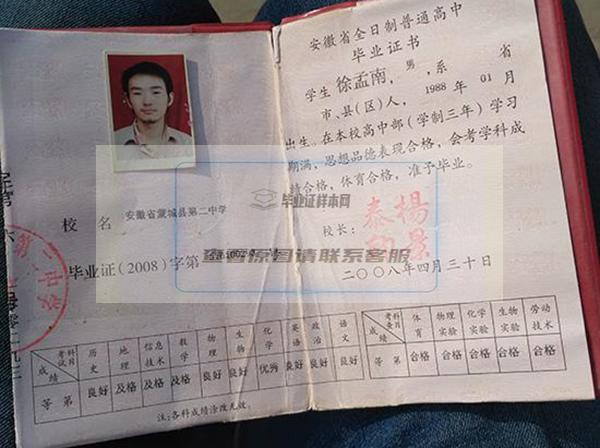 安徽省全日制普通高中
毕业证书
学生徐孟南,男,系 省
市、县(区)人,1988年01月
出生。在本校高中部(学制三年)学习
期满,思想品德表现合格,会考学科成
绩合格,体育合格,准予毕业。
校名 安徽省蒙城县第二中学
校长:
毕业证(2008)字第
二〇〇八年四月三十日
毕业证样本网
查看原图请联系客服
考试科目 历史 地理 信息技术 数学 物理 生物 化学 英语 政治 语文
成绩
等第 良好 及格 及格 及格 良好 良好 优秀 良好 良好 良好
注:各科成绩涂改无效。
考查科目 体育 物理实验 化学实验 生物实验 劳动技术
成绩
等第 合格 合格 合格 合格 合格